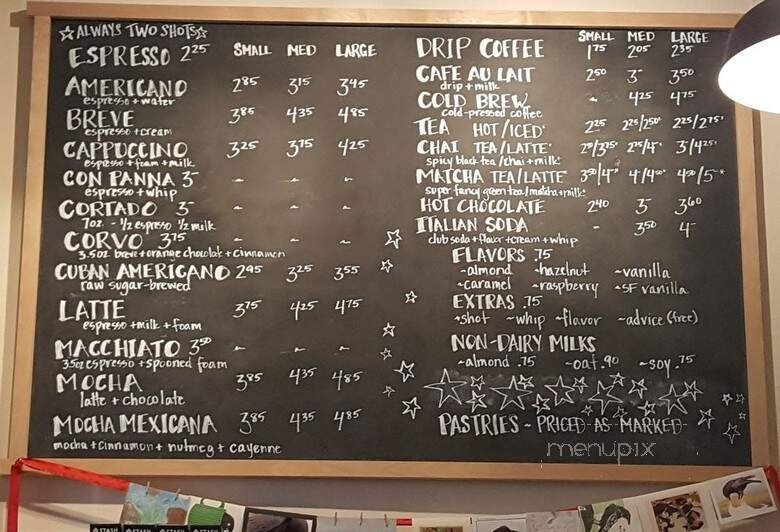 ☆ALWAYS TWO SHOTS☆
ESPRESSO 2.25 SMALL MED LARGE
AMERICANO 2.85 3.15 3.45
espresso + water
BREVE 3.85 4.35 4.85
espresso + cream
CAPPUCCINO 3.25 3.75 4.25
espresso + foam + milk
CON PANNA 3- - - -
espresso + whip
CORTADO 3- - - -
7oz. - 1/2 espresso 1/2 milk
CORVO 3.75 - - -
3.5oz breve + orange chocolate + cinnamon
CUBAN AMERICANO 2.95 3.25 3.55
raw sugar-brewed
LATTE 3.75 4.25 4.75
espresso + milk + foam
MACCHIATO 3.50 - - -
3.5oz espresso + spooned foam
MOCHA 3.85 4.35 4.85
latte + chocolate
MOCHA MEXICANA 3.85 4.35 4.85
mocha + cinnamon + nutmeg + cayenne
SMALL MED LARGE
DRIP COFFEE 1.75 2.05 2.35
CAFE AU LAIT 2.50 3- 3.50
drip + milk
COLD BREW - 4.25 4.75
cold-pressed coffee
TEA HOT/ICED* 2.25 2.25/2.50* 2.25/2.75*
CHAI TEA/LATTE* 3/4.25*
spicy black tea/chai + milk*
MATCHA TEA/LATTE* 3.50/4-* 4/4.50* 4.50/5-*
super fancy green tea/matcha + milk*
HOT CHOCOLATE 2.40 3- 3.60
ITALIAN SODA - 3.50 4-
club soda + flavor + cream + whip
FLAVORS .75
~almond ~hazelnut ~vanilla
~caramel ~raspberry ~SF vanilla
EXTRAS .75
+shot ~whip ~flavor ~advice (free)
NON-DAIRY MILKS
~almond .75 ~oat .90 ~soy .75
PASTRIES ~ PRICED-AS-MARKED-
menupix
STASH STASH STASH STASH